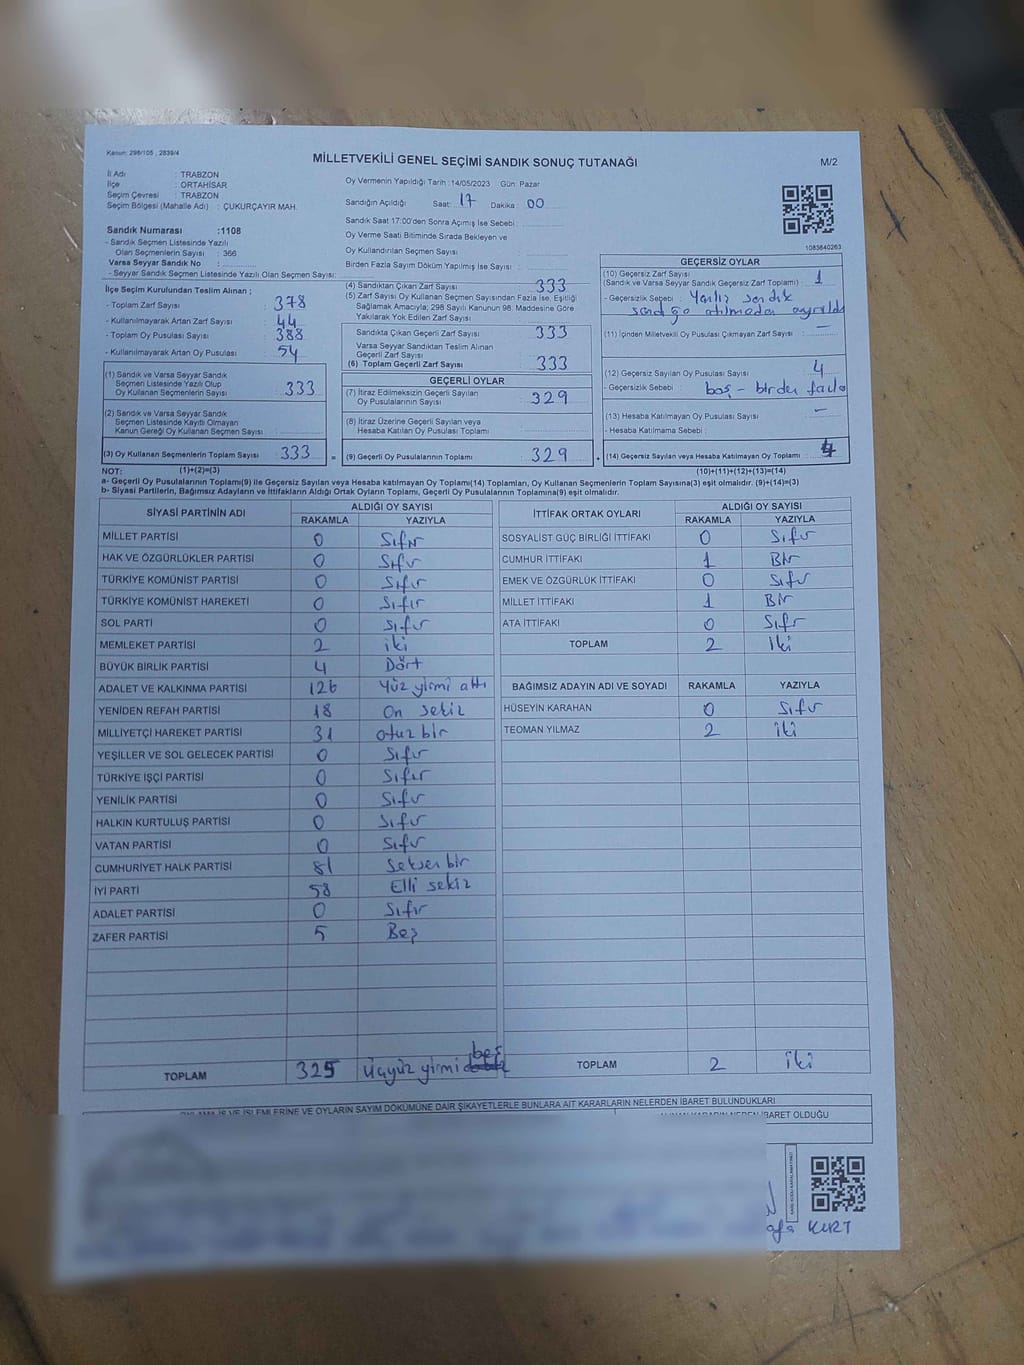 Kanun: 298/105 , 2839/4
MİLLETVEKİLİ GENEL SEÇİMİ SANDIK SONUÇ TUTANAĞI
M/2
İl Adı : TRABZON
İlçe : ORTAHİSAR
Seçim Çevresi : TRABZON
Seçim Bölgesi (Mahalle Adı) : ÇUKURÇAYIR MAH.
Sandık Numarası :1108
- Sandık Seçmen Listesinde Yazılı
Olan Seçmenlerin Sayısı : 366
Varsa Seyyar Sandık No :
- Seyyar Sandık Seçmen Listesinde Yazılı Olan Seçmen Sayısı:
Oy Vermenin Yapıldığı Tarih : 14/05/2023 Gün: Pazar
Sandığın Açıldığı Saat: 17 Dakika : 00
Sandık Saat 17:00'den Sonra Açımış İse Sebebi :
Oy Verme Saati Bitiminde Sırada Bekleyen ve
Oy Kullandırılan Seçmen Sayısı :
Birden Fazla Sayım Döküm Yapılmış İse Sayısı :
1083640263
İlçe Seçim Kurulundan Teslim Alınan ;
- Toplam Zarf Sayısı : 378
- Kullanılmayarak Artan Zarf Sayısı : 44
- Toplam Oy Pusulası Sayısı : 388
- Kullanılmayarak Artan Oy Pusulası : 54
(1) Sandık ve Varsa Seyyar Sandık
Seçmen Listesinde Yazılı Olup
Oy Kullanan Seçmenlerin Sayısı : 333
(2) Sandık ve Varsa Seyyar Sandık
Seçmen Listesinde Kayıtlı Olmayan
Kanun Gereği Oy Kullanan Seçmen Sayısı :
(3) Oy Kullanan Seçmenlerin Toplam Sayısı : 333 =
(4) Sandıktan Çıkan Zarf Sayısı : 333
(5) Zarf Sayısı Oy Kullanan Seçmen Sayısından Fazla İse, Eşitliği
Sağlamak Amacıyla; 298 Sayılı Kanunun 98. Maddesine Göre
Yakılarak Yok Edilen Zarf Sayısı :
Sandıkta Çıkan Geçerli Zarf Sayısı : 333
Varsa Seyyar Sandıktan Teslim Alınan
Geçerli Zarf Sayısı :
(6) Toplam Geçerli Zarf Sayısı : 333
GEÇERLİ OYLAR
(7) İtiraz Edilmeksizin Geçerli Sayılan
Oy Pusulalarının Sayısı : 329
(8) İtiraz Üzerine Geçerli Sayılan veya
Hesaba Katılan Oy Pusulası Toplamı :
(9) Geçerli Oy Pusulalarının Toplamı : 329 +
GEÇERSİZ OYLAR
(10) Geçersiz Zarf Sayısı
(Sandık ve Varsa Seyyar Sandık Geçersiz Zarf Toplamı) : 1
- Geçersizlik Sebebi :
(11) İçinden Milletvekili Oy Pusulası Çıkmayan Zarf Sayısı : –
(12) Geçersiz Sayılan Oy Pusulası Sayısı : 4
- Geçersizlik Sebebi : boş - birden fazla
(13) Hesaba Katılmayan Oy Pusulası Sayısı : –
- Hesaba Katılmama Sebebi :
(14) Geçersiz Sayılan veya Hesaba Katılmayan Oy Toplamı : 4
NOT: (1)+(2)=(3) (10)+(11)+(12)+(13)=(14)
a- Geçerli Oy Pusulalarının Toplamı(9) ile Geçersiz Sayılan veya Hesaba Katılmayan Oy Toplamı(14) Toplamları, Oy Kullanan Seçmenlerin Toplam Sayısına(3) eşit olmalıdır. (9)+(14)=(3)
b- Siyasi Partilerin, Bağımsız Adayların ve İttifakların Aldığı Ortak Oyların Toplamı, Geçerli Oy Pusulalarının Toplamına(9) eşit olmalıdır.
SİYASİ PARTİNİN ADI ALDIĞI OY SAYISI
RAKAMLA YAZIYLA
MİLLET PARTİSİ 0 Sıfır
HAK VE ÖZGÜRLÜKLER PARTİSİ 0 Sıfır
TÜRKİYE KOMÜNİST PARTİSİ 0 Sıfır
TÜRKİYE KOMÜNİST HAREKETİ 0 Sıfır
SOL PARTİ 0 Sıfır
MEMLEKET PARTİSİ 2 iki
BÜYÜK BİRLİK PARTİSİ 4 Dört
ADALET VE KALKINMA PARTİSİ 126 Yüz yirmi altı
YENİDEN REFAH PARTİSİ 18 On sekiz
MİLLİYETÇİ HAREKET PARTİSİ 31 otuz bir
YEŞİLLER VE SOL GELECEK PARTİSİ 0 Sıfır
TÜRKİYE İŞÇİ PARTİSİ 0 Sıfır
YENİLİK PARTİSİ 0 Sıfır
HALKIN KURTULUŞ PARTİSİ 0 Sıfır
VATAN PARTİSİ 0 Sıfır
CUMHURİYET HALK PARTİSİ 81 Seksen bir
İYİ PARTİ 58 Elli sekiz
ADALET PARTİSİ 0 Sıfır
ZAFER PARTİSİ 5 Beş
TOPLAM 325 Üçyüz yirmi beş
İTTİFAK ORTAK OYLARI ALDIĞI OY SAYISI
RAKAMLA YAZIYLA
SOSYALİST GÜÇ BİRLİĞİ İTTİFAKI 0 Sıfır
CUMHUR İTTİFAKI 1 Bir
EMEK VE ÖZGÜRLÜK İTTİFAKI 0 Sıfır
MİLLET İTTİFAKI 1 Bir
ATA İTTİFAKI 0 Sıfır
TOPLAM 2 İki
BAĞIMSIZ ADAYIN ADI VE SOYADI RAKAMLA YAZIYLA
HÜSEYİN KARAHAN 0 Sıfır
TEOMAN YILMAZ 2 iki
TOPLAM 2 iki
OYLAMA İŞ VE İŞLEMLERİNE VE OYLARIN SAYIM DÖKÜMÜNE DAİR ŞİKAYETLERLE BUNLARA AİT KARARLARIN NELERDEN İBARET BULUNDUKLARI
İBARET OLDUĞU
KURT